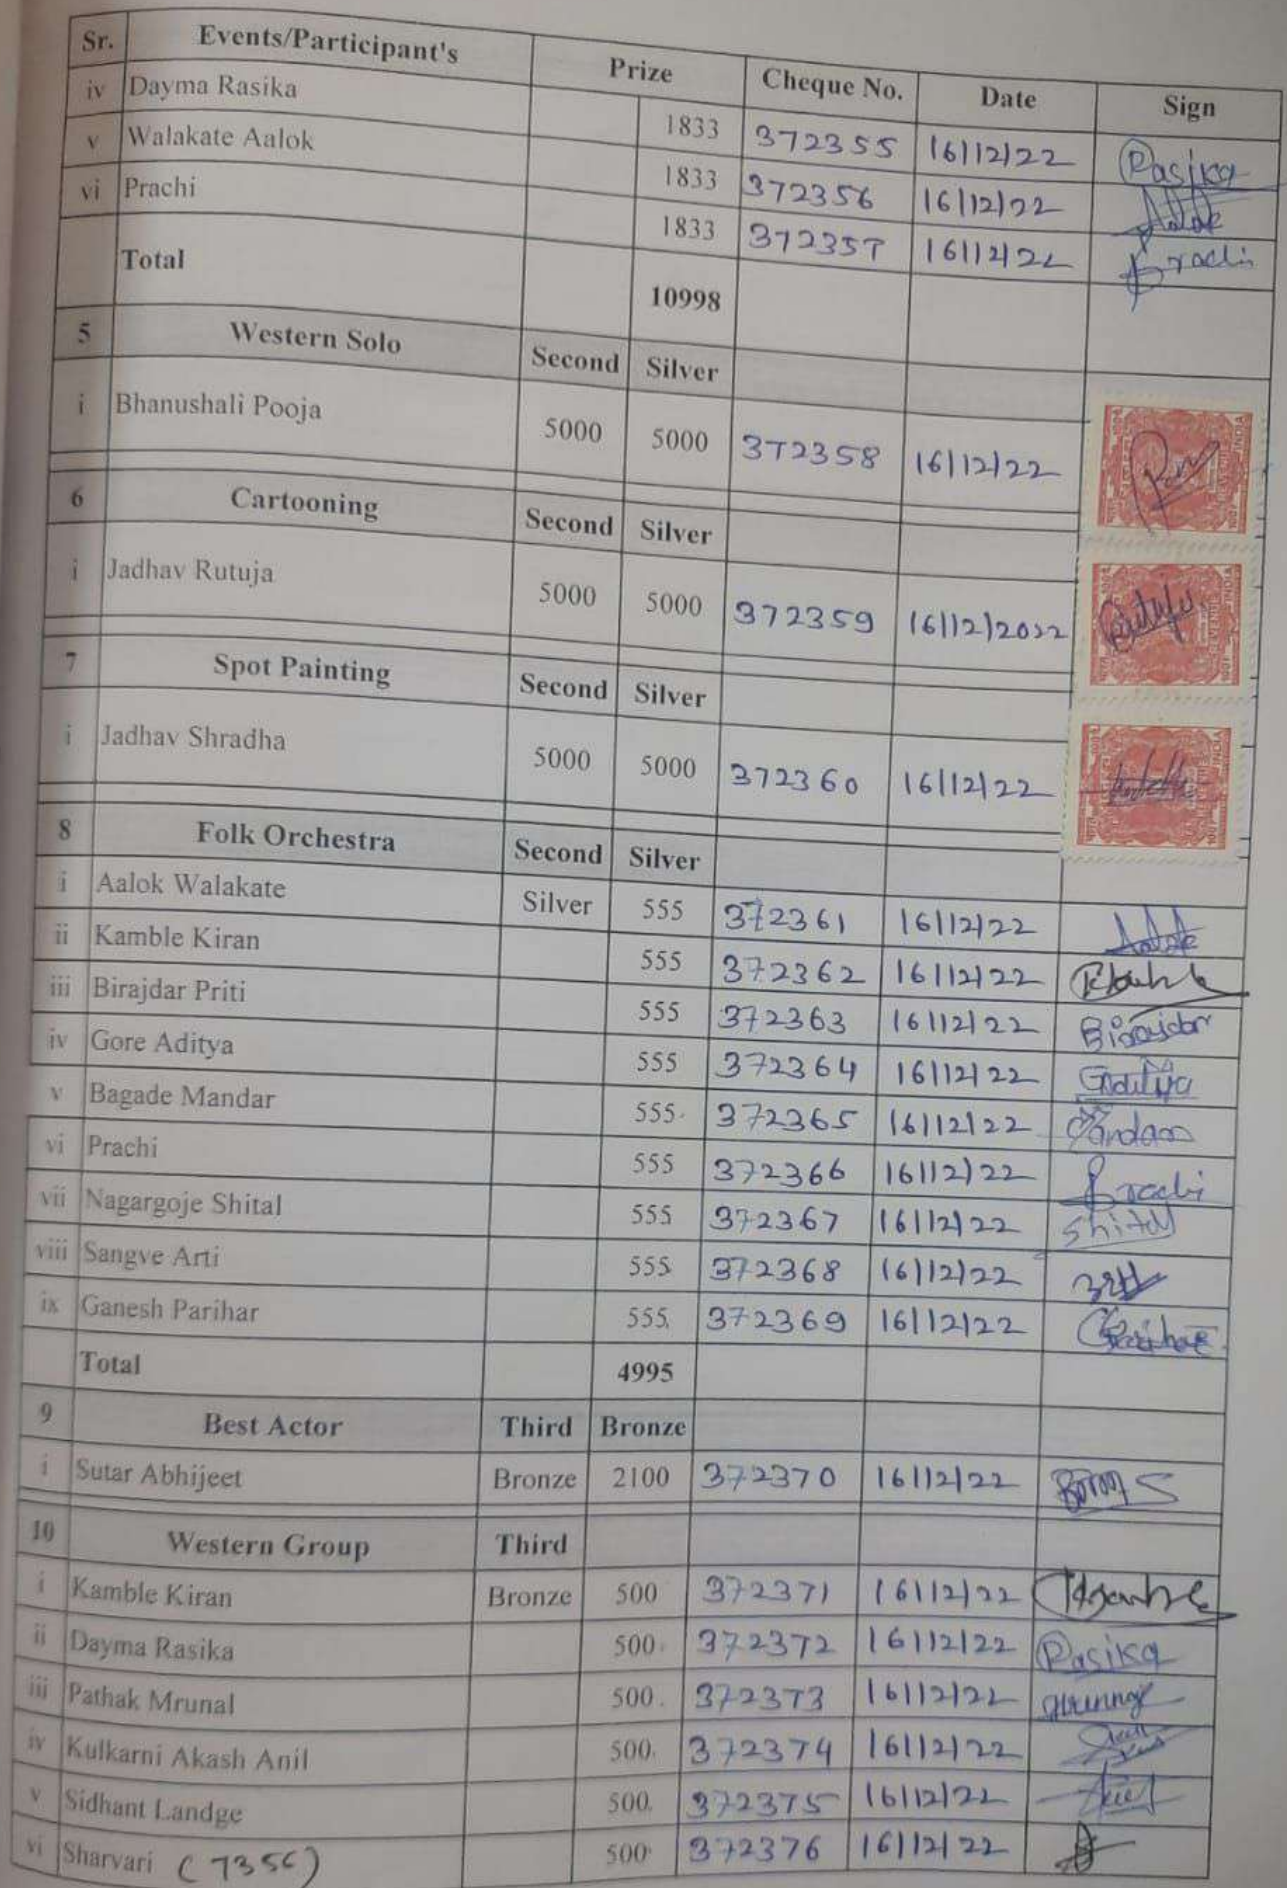 Sr. Events/Participant's Prize Cheque No. Date Sign
iv Dayma Rasika 1833 372355 16/12/22 Rasika
v Walakate Aalok 1833 372356 16/12/22 Aalok
vi Prachi 1833 372357 16/12/22 Prachi
Total 10998
5 Western Solo Second Silver
i Bhanushali Pooja 5000 5000 372358 16/12/22
6 Cartooning Second Silver
i Jadhav Rutuja 5000 5000 372359 16/12/2022
7 Spot Painting Second Silver
i Jadhav Shradha 5000 5000 372360 16/12/22
8 Folk Orchestra Second Silver
i Aalok Walakate Silver 555 372361 16/12/22 Aalok
ii Kamble Kiran 555 372362 16/12/22
iii Birajdar Priti 555 372363 16/12/22 Birajdar
iv Gore Aditya 555 372364 16/12/22
v Bagade Mandar 555 372365 16/12/22
vi Prachi 555 372366 16/12/22 Prachi
vii Nagargoje Shital 555 372367 16/12/22 Shital
viii Sangve Arti 555 372368 16/12/22
ix Ganesh Parihar 555 372369 16/12/22
Total 4995
9 Best Actor Third Bronze
i Sutar Abhijeet Bronze 2100 372370 16/12/22
10 Western Group Third
i Kamble Kiran Bronze 500 372371 16/12/22
ii Dayma Rasika 500 372372 16/12/22 Rasika
iii Pathak Mrunal 500 372373 16/12/22
iv Kulkarni Akash Anil 500 372374 16/12/22
v Sidhant Landge 500 372375 16/12/22
vi Sharvari (7356) 500 372376 16/12/22